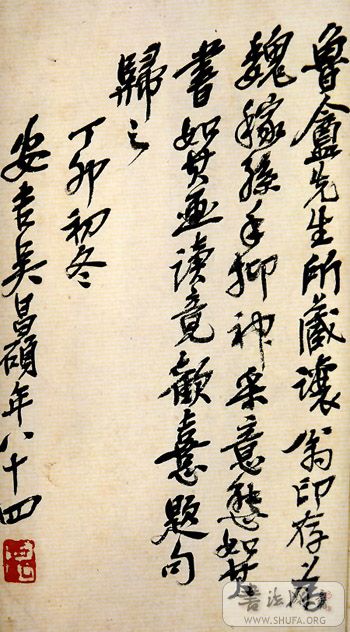 魯盦先生所藏讓翁印存為
魏稼孫手抑神采意態如其
書如其畫讀竟歡喜題句
歸之
丁卯初冬
安吉吳昌碩年八十四
WWW.SHUFA.ORG